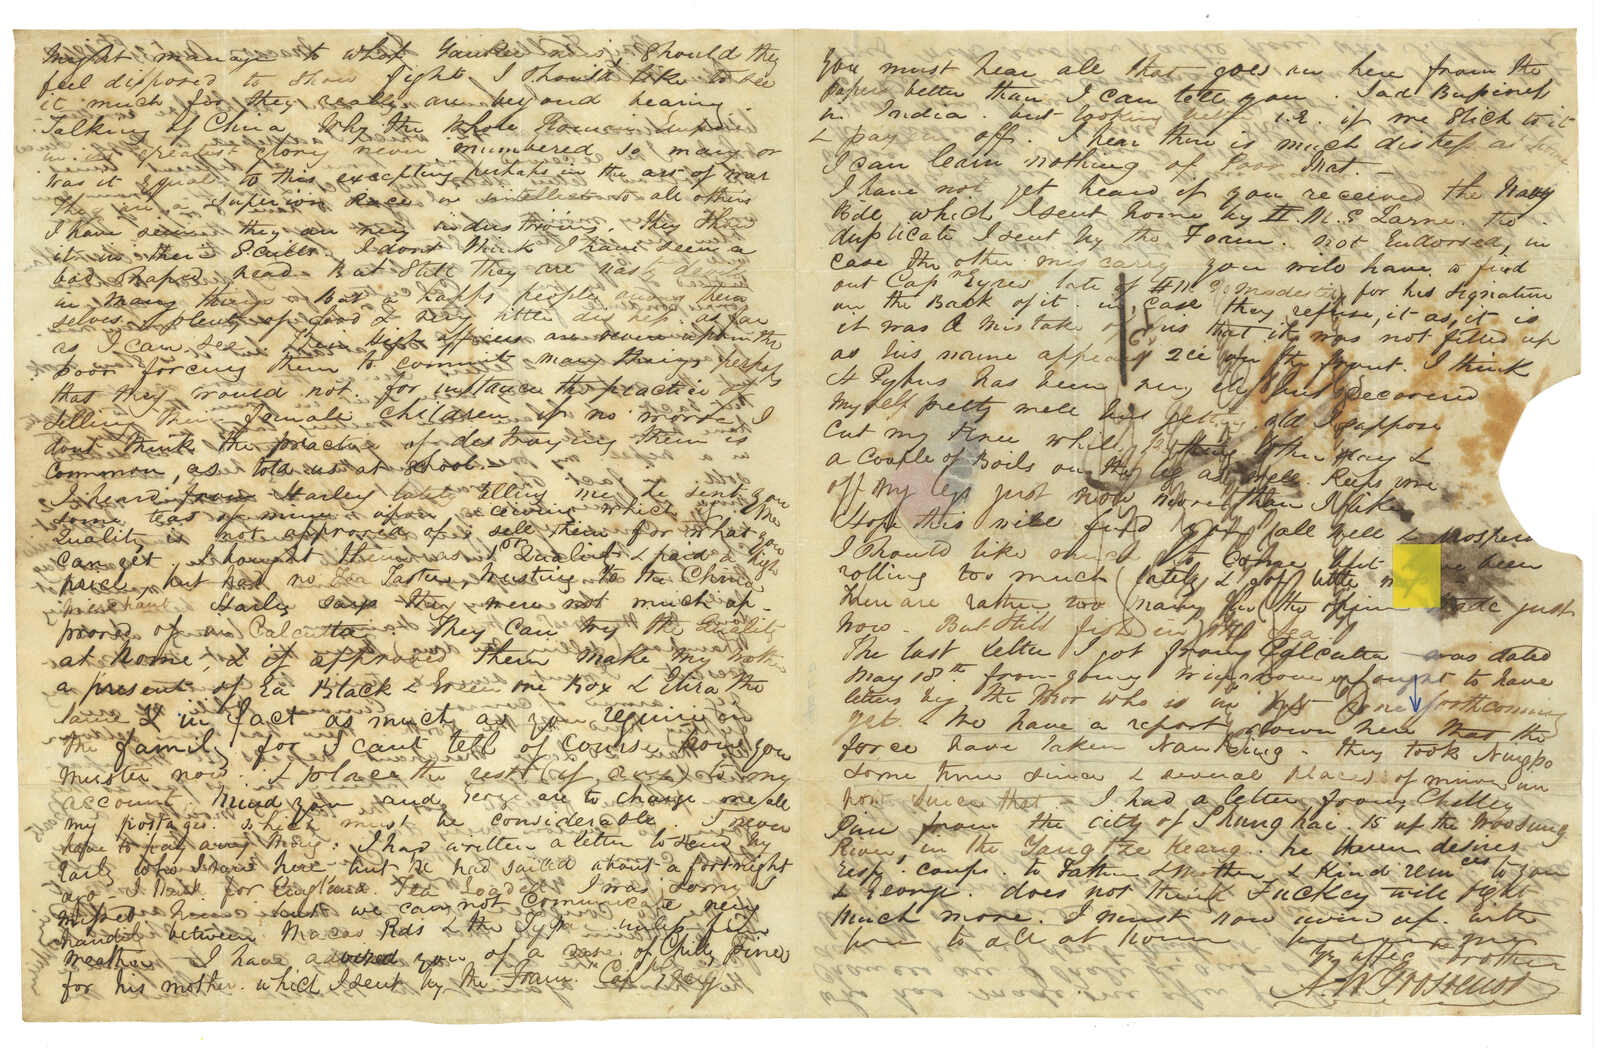 might manage to whop Yankee noise, should they
feel disposed to show fight. I should like to see
it much for they really are beyond bearing.
Talking of China, Why the whole Roman Empire
in its greatest glory never numbered so many or
was it equal to this excepting perhaps in the art of war
They are a superior race in intellect to all others
I have seen they are very industrious. They show
it in their Sculls. I dont think I have seen a
bad shaped head. But still they are nasty devils
in many things. But a happy people among them
selves. plenty of food & very little distress as far
as I can see. Their high officers are down upon the
poor forcing them to commit many things perhaps
that they would not. for instance the practice of
selling their female children if no more, I
dont think the practice of destroying them is
common, as told us at school.
I heard from Harley lately telling me he sent you
some teas of mine upon a which if the
Quality is not approved of sell them for what you
can get. I bought them as 1st Quality & paid a high
price, but had no Tea Taster trusting to the China
merchant. Harley says they were not much ap-
proved of in Calcutta. They can try the Quality
at home, & if approved them make my mother
a present of Ea Black & Green one Box & Eliza the
same & in fact as much as you require in
the family for I cant tell of course how you
muster now. & place the rest (if any) to my
account. Mind you and George are to charge me all
my postages. which must be considerable I never
have to pay away Money. I had written a letter to send by
Early who I saw here but he had sailed about a fortnight
ago I think for England. Tea Loaded. I was sorry I
missed him but we can not communicate very
handily between Macao Rds & the Typa unless fine
weather. I have advised you of a case of Chilly Pines
for his mother. which I sent by the Foam. Capt Grey
You must hear all that goes on here from the
Papers better than I can tell you. Sad Business
in India. but looking well i.e. if we stick to it
& pay em off. I hear there is much distress at home
I can learn nothing of Poor Nat.
I have not yet heard if you received the Navy
Bill which I sent home by H.M.S Larne. the
duplicate I sent by the Foam. Not Endorsed, in
case the other miscarry you will have to find
out Capn Eyres late of H.M.S Modeste for his signature
on the Back of it. in case they refuse, it as, it is
it was a mistake of us that it was not filled up
as his name appears on the front. I think
H Pybus has been very ill but Recovered
Myself pretty well but getting old I suppose
cut my Knee while bathing tother day &
a couple of Boils on the leg as well. Keeps me
off my legs just now more than I like
Hope this will find you all well & prosperous
I should like much to Come but have been
rolling too much lately & got little
there are rather too many for the opium trade just
now. But still fish in the Sea
The last letter I got from Calcutta was dated
May 18th from young ought to have
letters by the Thor who is in not forthcoming
yet. We have a report down here that the
force have taken Nanking. they took Ningpo
some time since & several places of minor im
port since that. I had a letter from Chilley
Pine from the city of Shanghai. 15 up the Woosung
River, in the Yangtze Keang. he therein desires
resp. comps. to Father & Mother & Kind remces to you
& George. does not think Fuckey will fight
much more. I must now wind up with
love to all at home
Yr affec Brother